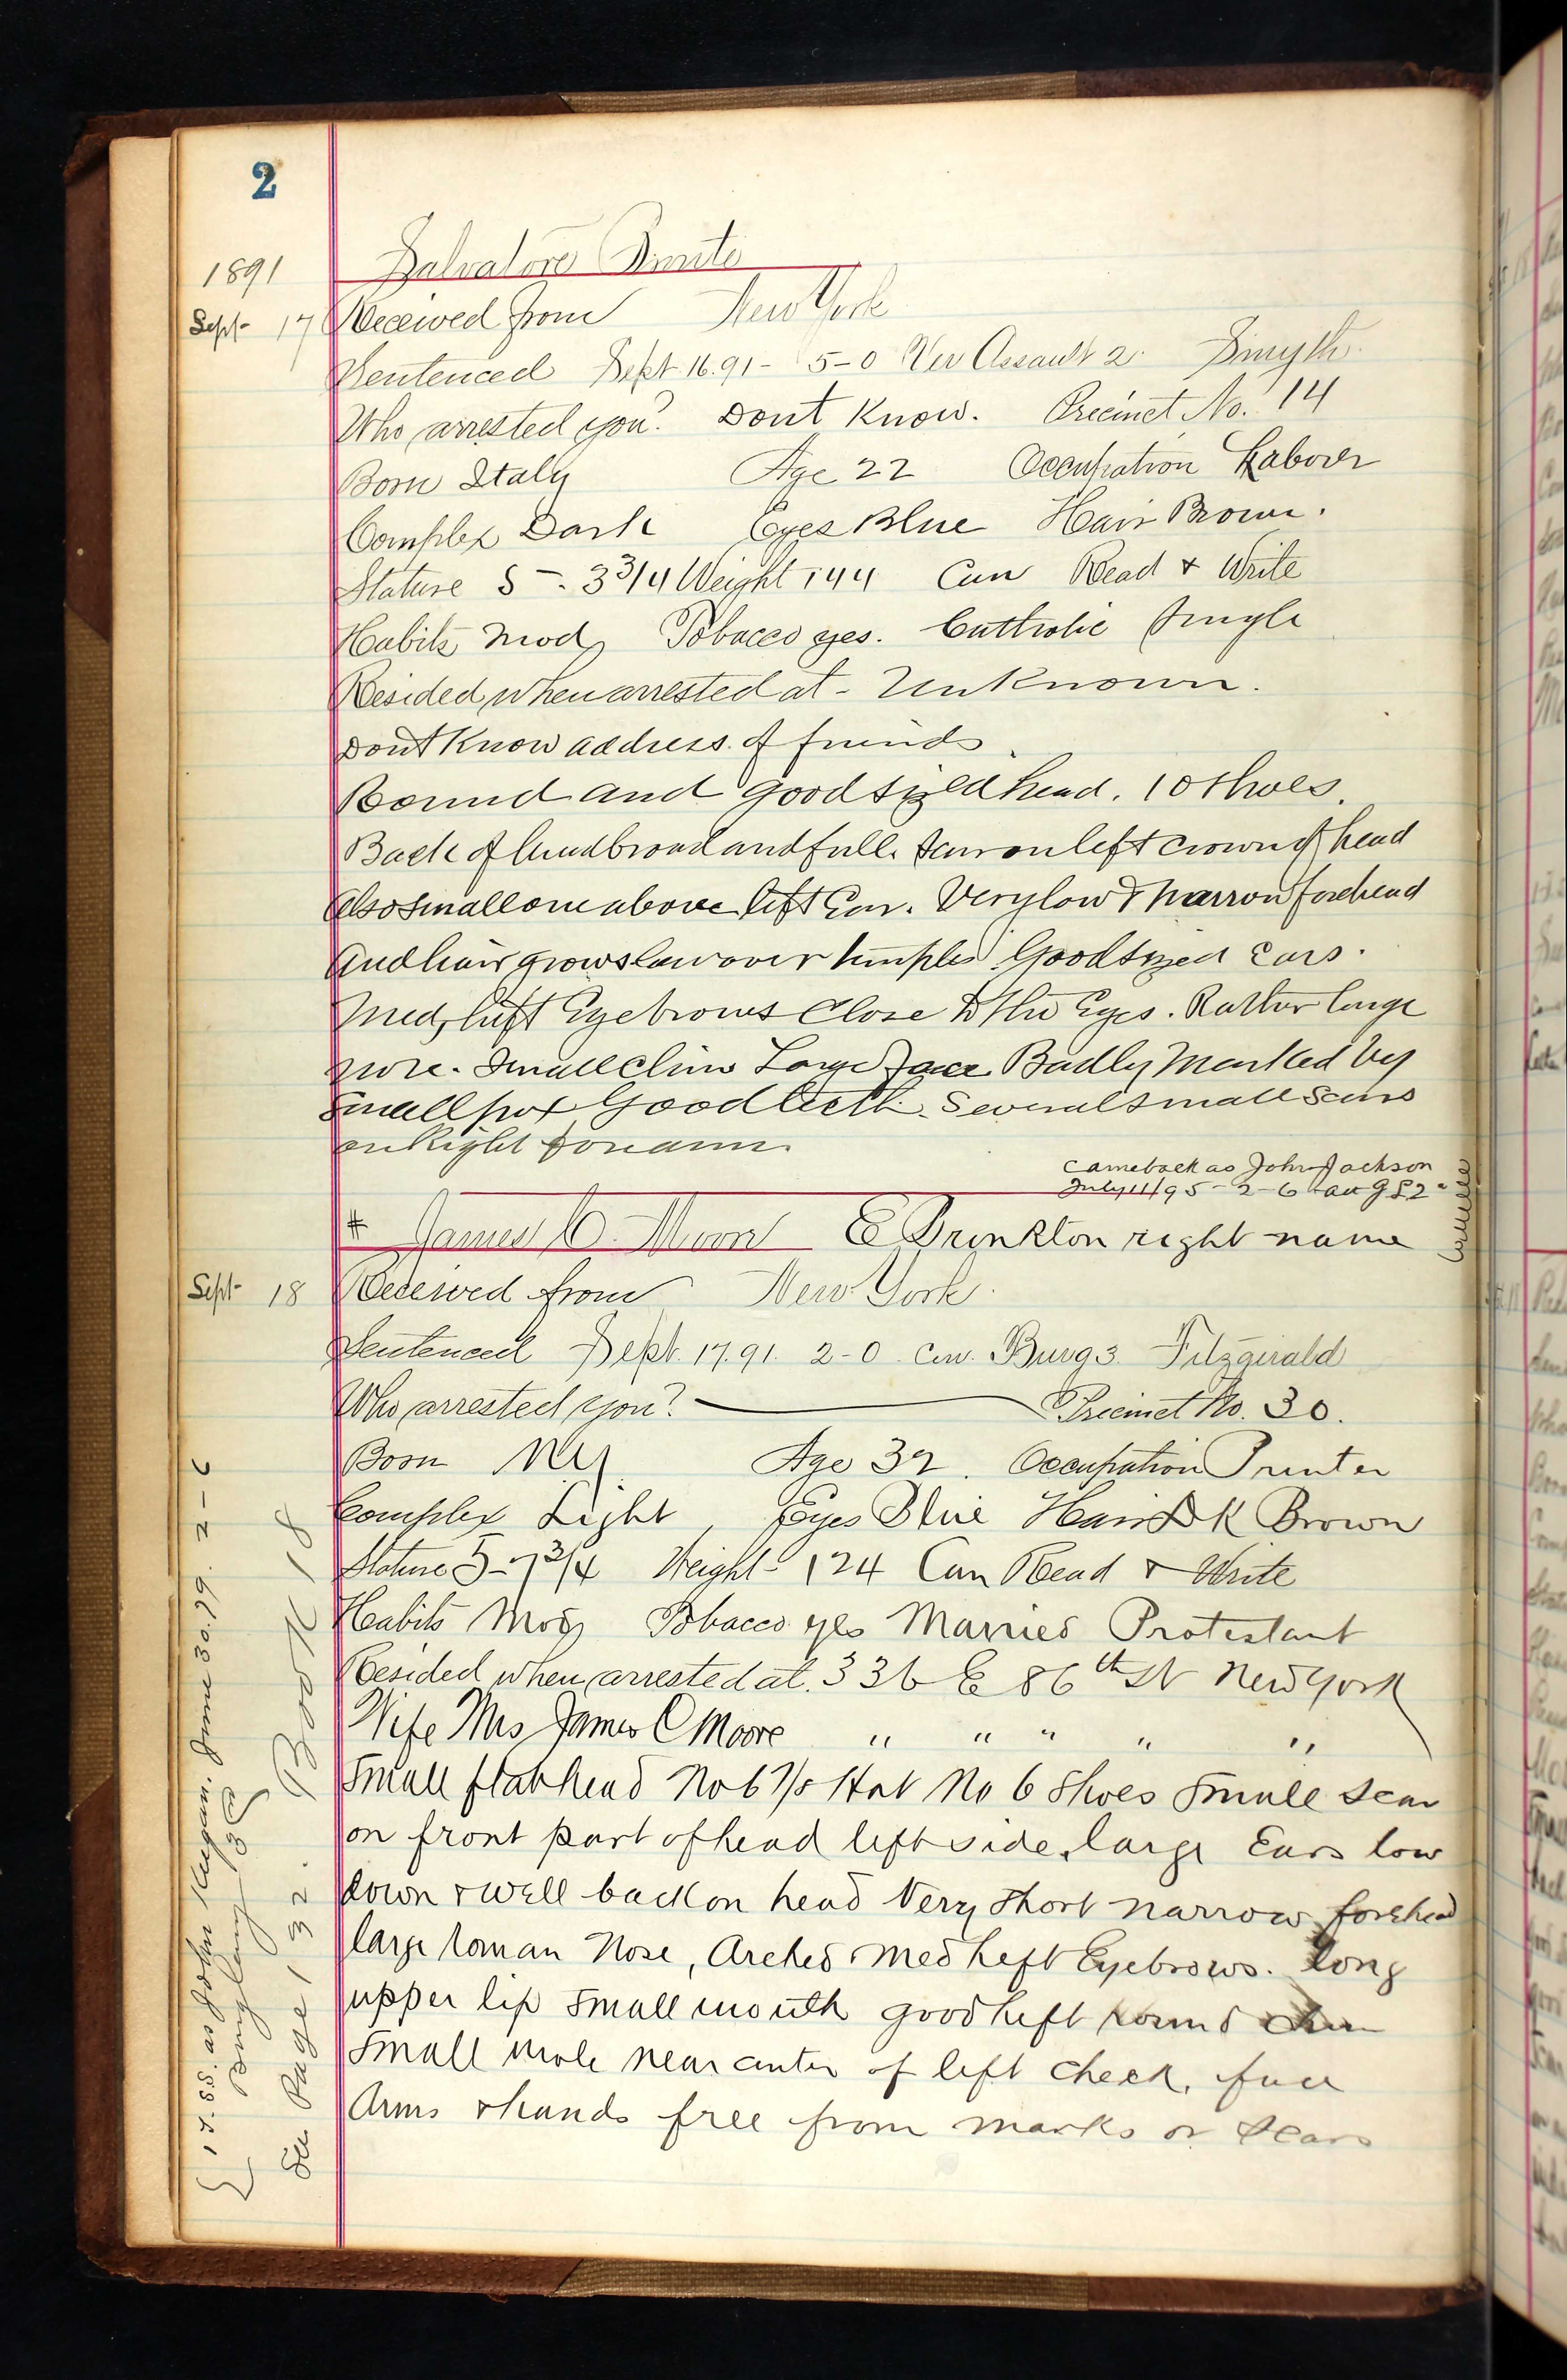 2
1891
Salvatore
Sept- 17 Received from New York
Sentenced Sept. 16. 91 - 5-0 Ver Assault 2. Smyth.
Who arrested you? Dont Know. Precinct No. 14
Born Italy Age 22 Occupation Laborer
Complex Dark Eyes Blue Hair Brown.
Stature 5-3 3/4 Weight 144 Can Read + Write
Habits Mod Tobacco yes. Catholic Single
Resided when arrested at - Unknown.
Dont Know address of friends
Round and good sized head. 10 Shoes.
Back of head broad and full. Scar on left crown of head
also small one above left Ear. Very low & narrow forehead
And hair grows low over temples. Good sized Ears.
Med, heft Eyebrows Close to the Eyes. Rather large
nose. Small chin Large Face Badly Marked by
Small pox Good teeth. Several small Scars
on Right forearm.
Came back as John Jackson
July 11/95 - 2-6 att G L 2"
# James C. Moore E Brinkton right name
Sept- 18 Received from New York.
Sentenced Sept. 17. 91. 2-0 Con. Burg 3. Fitzgerald
Who arrested you? Precinct No. 30.
Born NY Age 32. Occupation Printer
Complex Light, Eyes Blue Hair Dk Brown
Stature 5-7 3/4 Weight- 124 Can Read & Write
Habits Mod Tobacco yes Married Protestant
Resided when arrested at. 336 E 86th St New York
Wife Mrs James C Moore " " " " "
Small flat head No 6 7/8 Hat No 6 Shoes Small scar
on front part of head left side, large Ears low
down & well back on head Very short narrow forehead
large Roman Nose, Arched Med heft Eyebrows. Long
upper lip small mouth good heft round chin
Small mole near center of left cheek, face
Arms & hands free from marks or scars
S.S. as John Keegan. June 30. 79. 2-6
Burglary 3d
See Page 132. Book 18